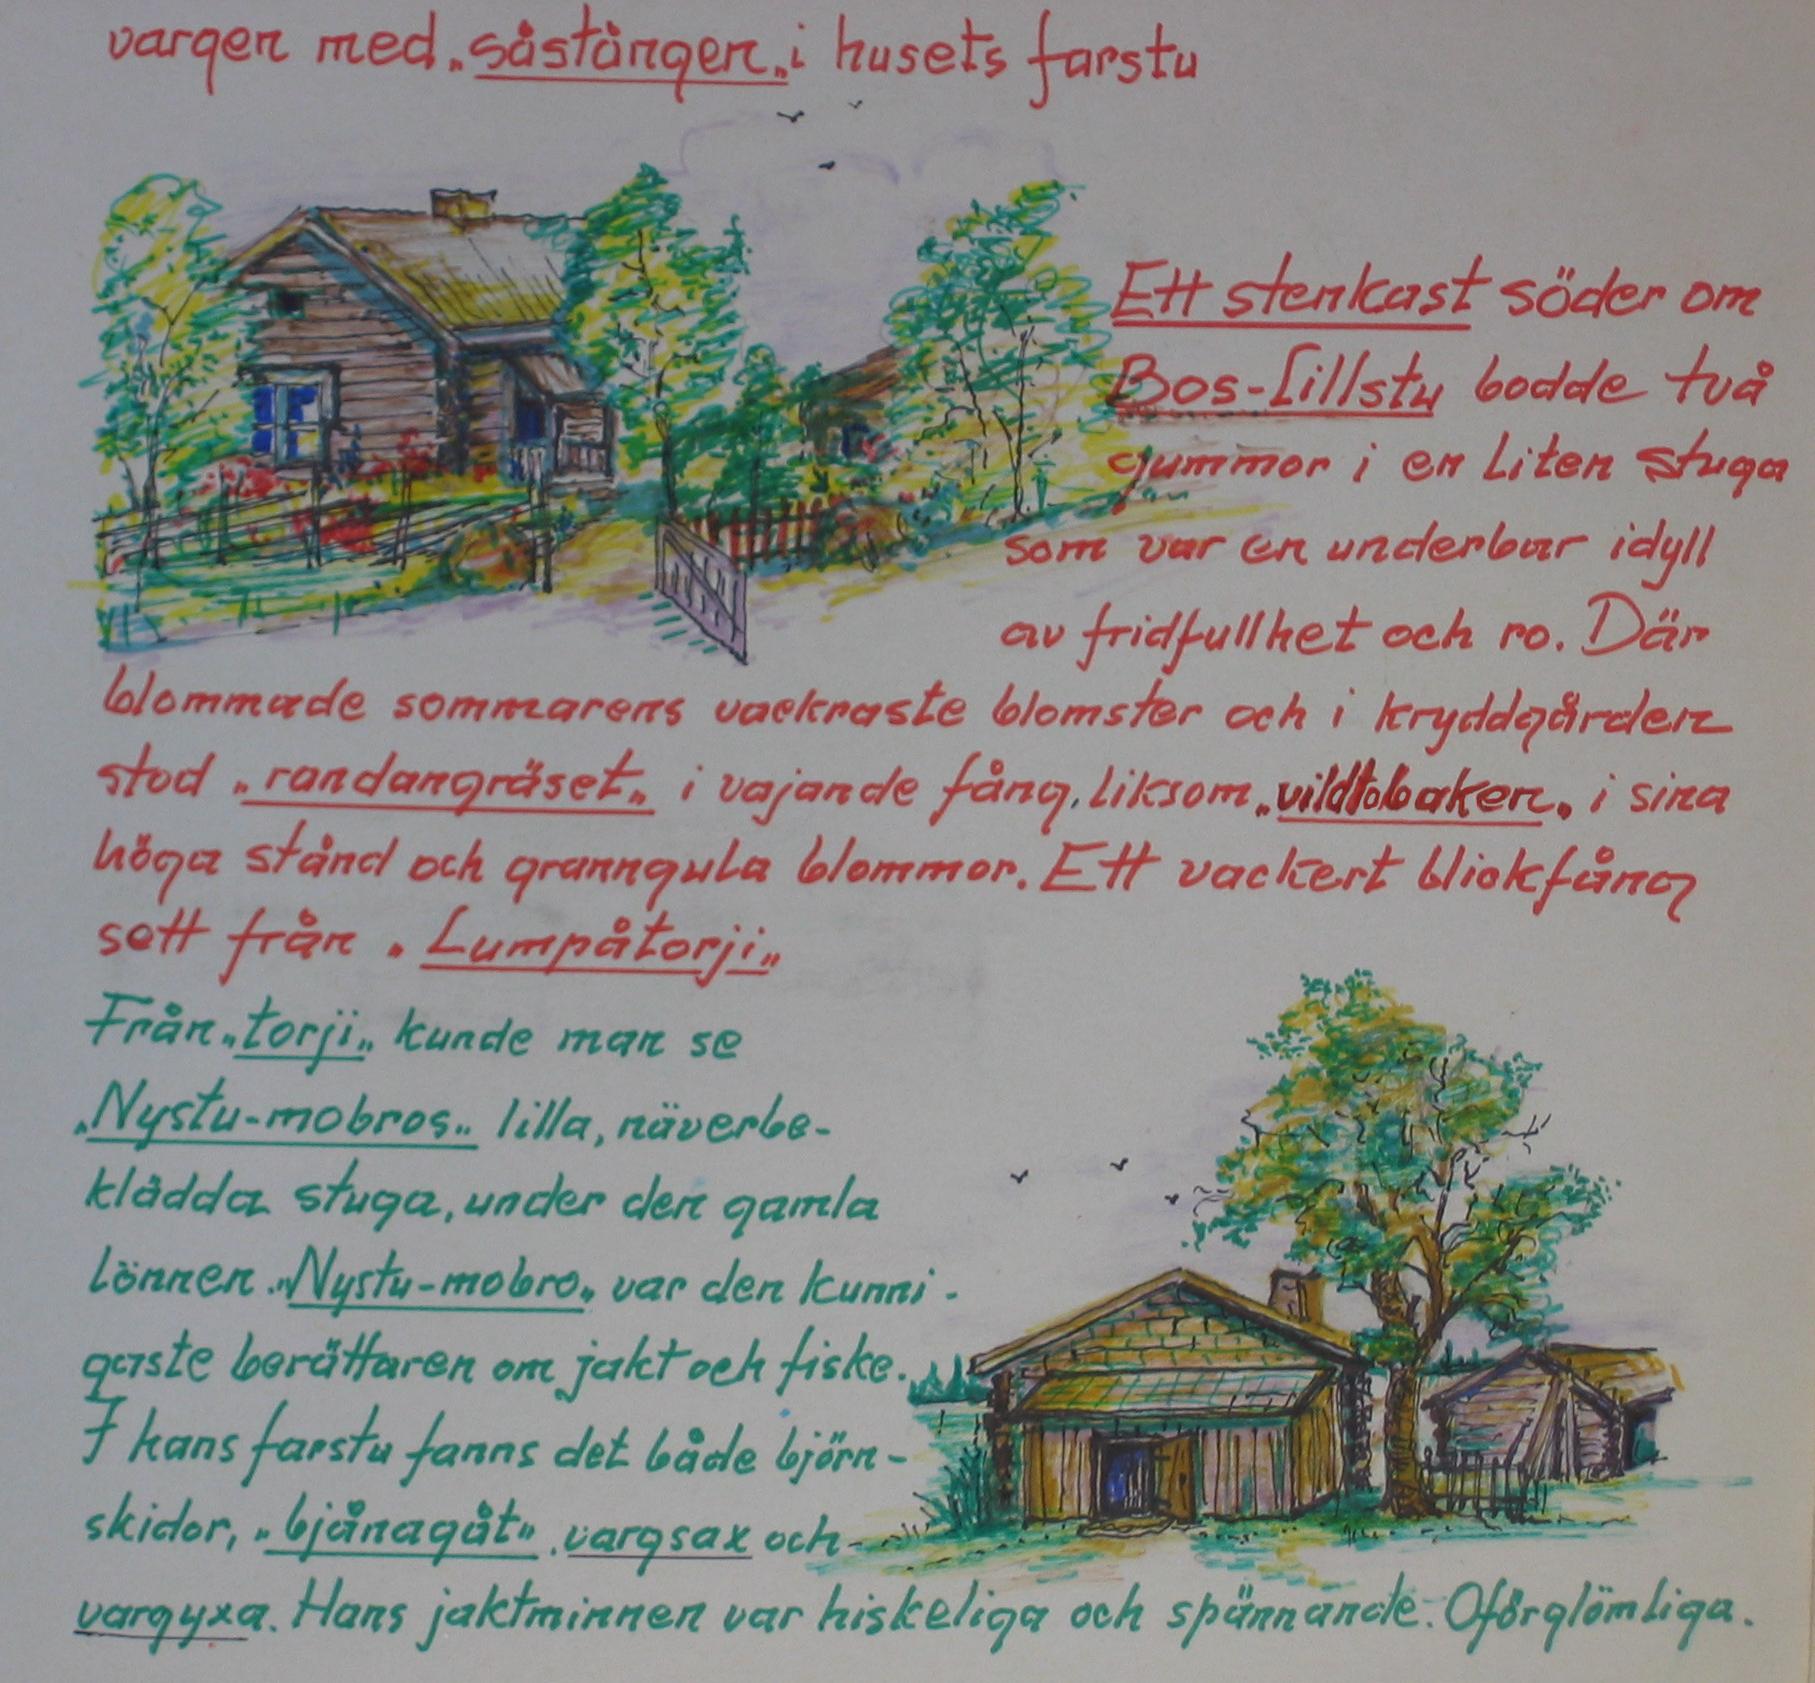 vargen med „såstången„ i husets farstu
Ett stenkast söder om
Bos-Lillstu bodde två
gummor i en liten stuga
som var en underbar idyll
av fridfullhet och ro. Där
blommade sommarens vackraste blomster och i kryddgården
stod „randangräset„ i vajande fång, liksom „vildtobaken„ i sina
höga stånd och granngula blommor. Ett vackert blickfång
sett från „Lumpåtorji„
Från „torji„ kunde man se
„Nystu-mobros„ lilla, näverbe-
klädda stuga, under den gamla
lönnen. „Nystu-mobro„ var den kunni-
gaste berättaren om jakt och fiske.
I hans farstu fanns det både björn-
skidor, „bjånagåt„, vargsax och
vargyxa. Hans jaktminnen var hiskeliga och spännande. Oförglömliga.